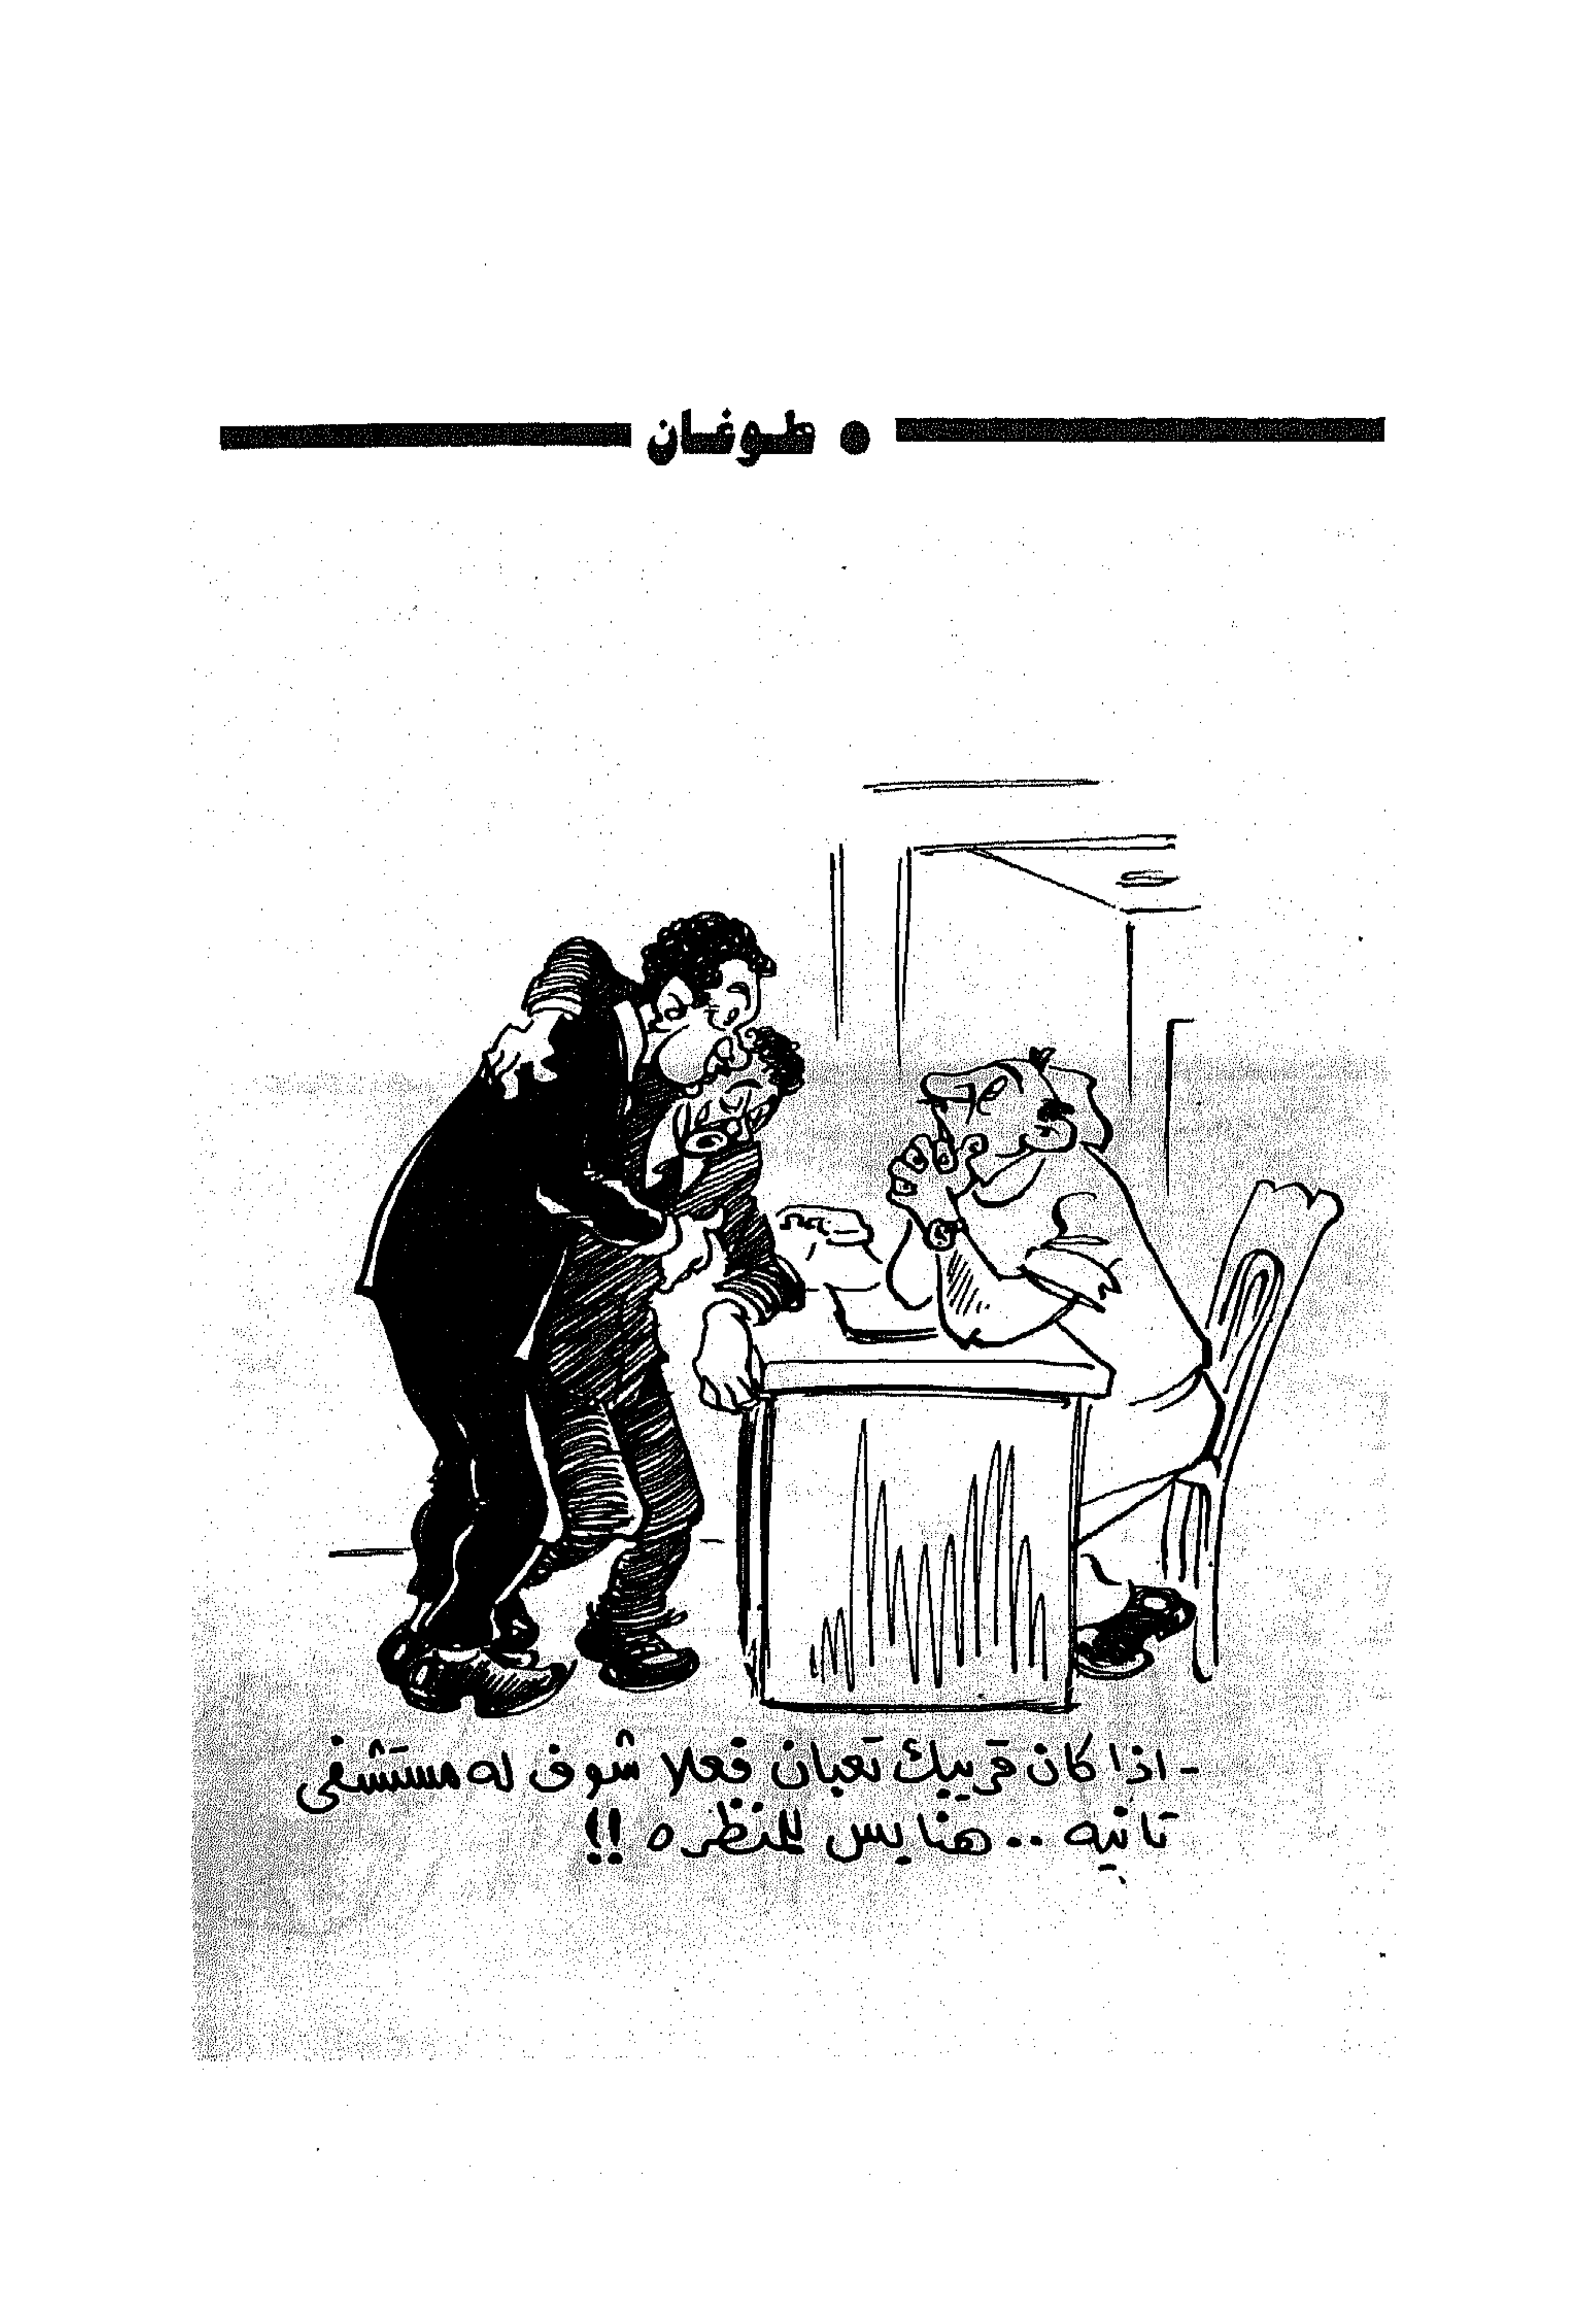 ● طوغان
- اذا كان قريبك تعبان فعلا شوف له مستشفى
تانيه .. هنا بس للمنظره !!